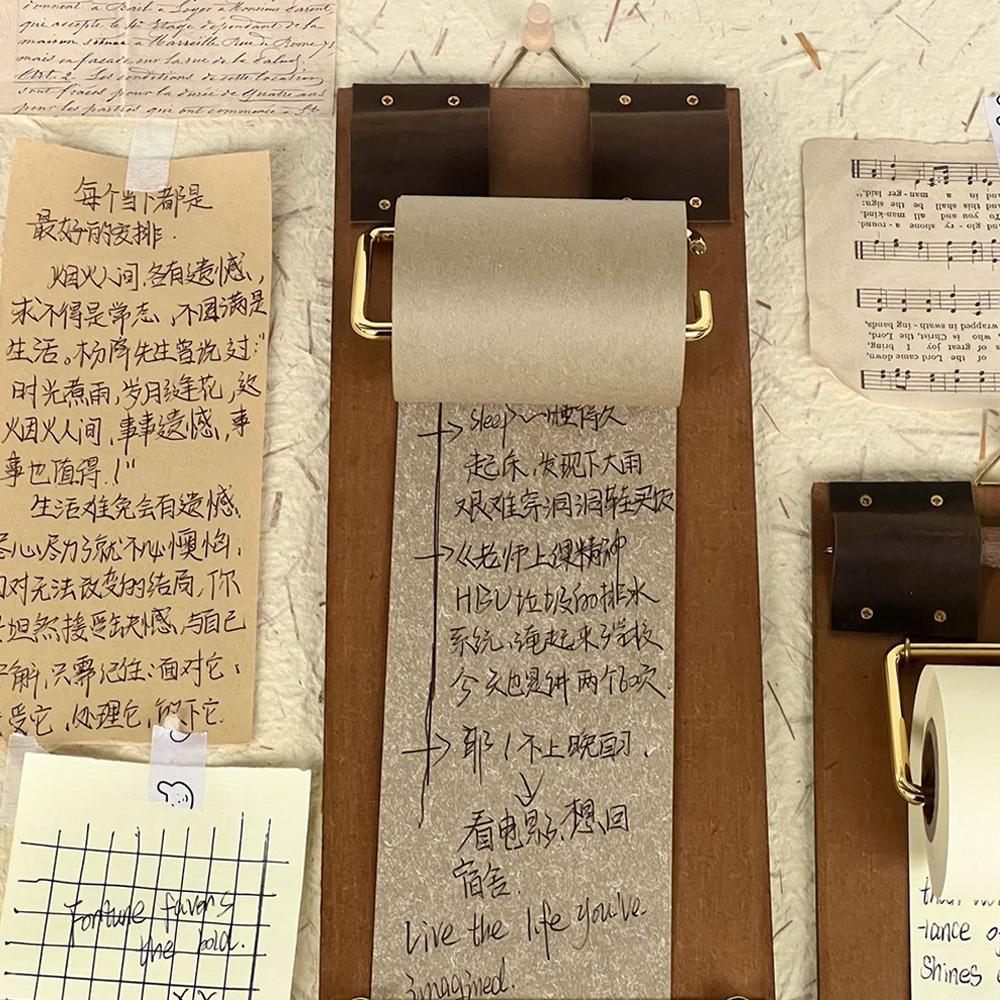 maison située à Marseille Rue de Rome
mais en façade sur la rue de la Salud.
Art. 2. Les conditions de cette location
sont fixées pour la durée de quatre ans
每个当下都是
最好的安排.
烟火人间,各有遗憾,
求不得是常态,不圆满是
生活。杨降先生曾说过:"
时光煮雨,岁月缝花,这
烟火人间,事事遗憾,事
事也值得.!"
生活难免会有遗憾、
尽心尽力就不必懊悔;
对无法改变的结局,你
坦然接受缺憾,与自己
解,只需记住:面对它;
受它,处理它,放下它.
Fortune favors
the bold.
sleep~睡得久
起床,发现下大雨
艰难穿洞洞鞋买饭
《老师上课精神
HBU垃圾的排水
系统,淹起来学校
今天也是讲两个60次
耶!不上晚自习.
看电影,想回
宿舍.
Live the life you've
imagined.
and in a man-ger laid."
and this shall be the sign:
To you and all man-kind.
and glo-ry shone a-round.
wrapped in swath-ing bands
who is Christ, the Lord,
of great joy I bring,
of the Lord came down,
-tance of
shines